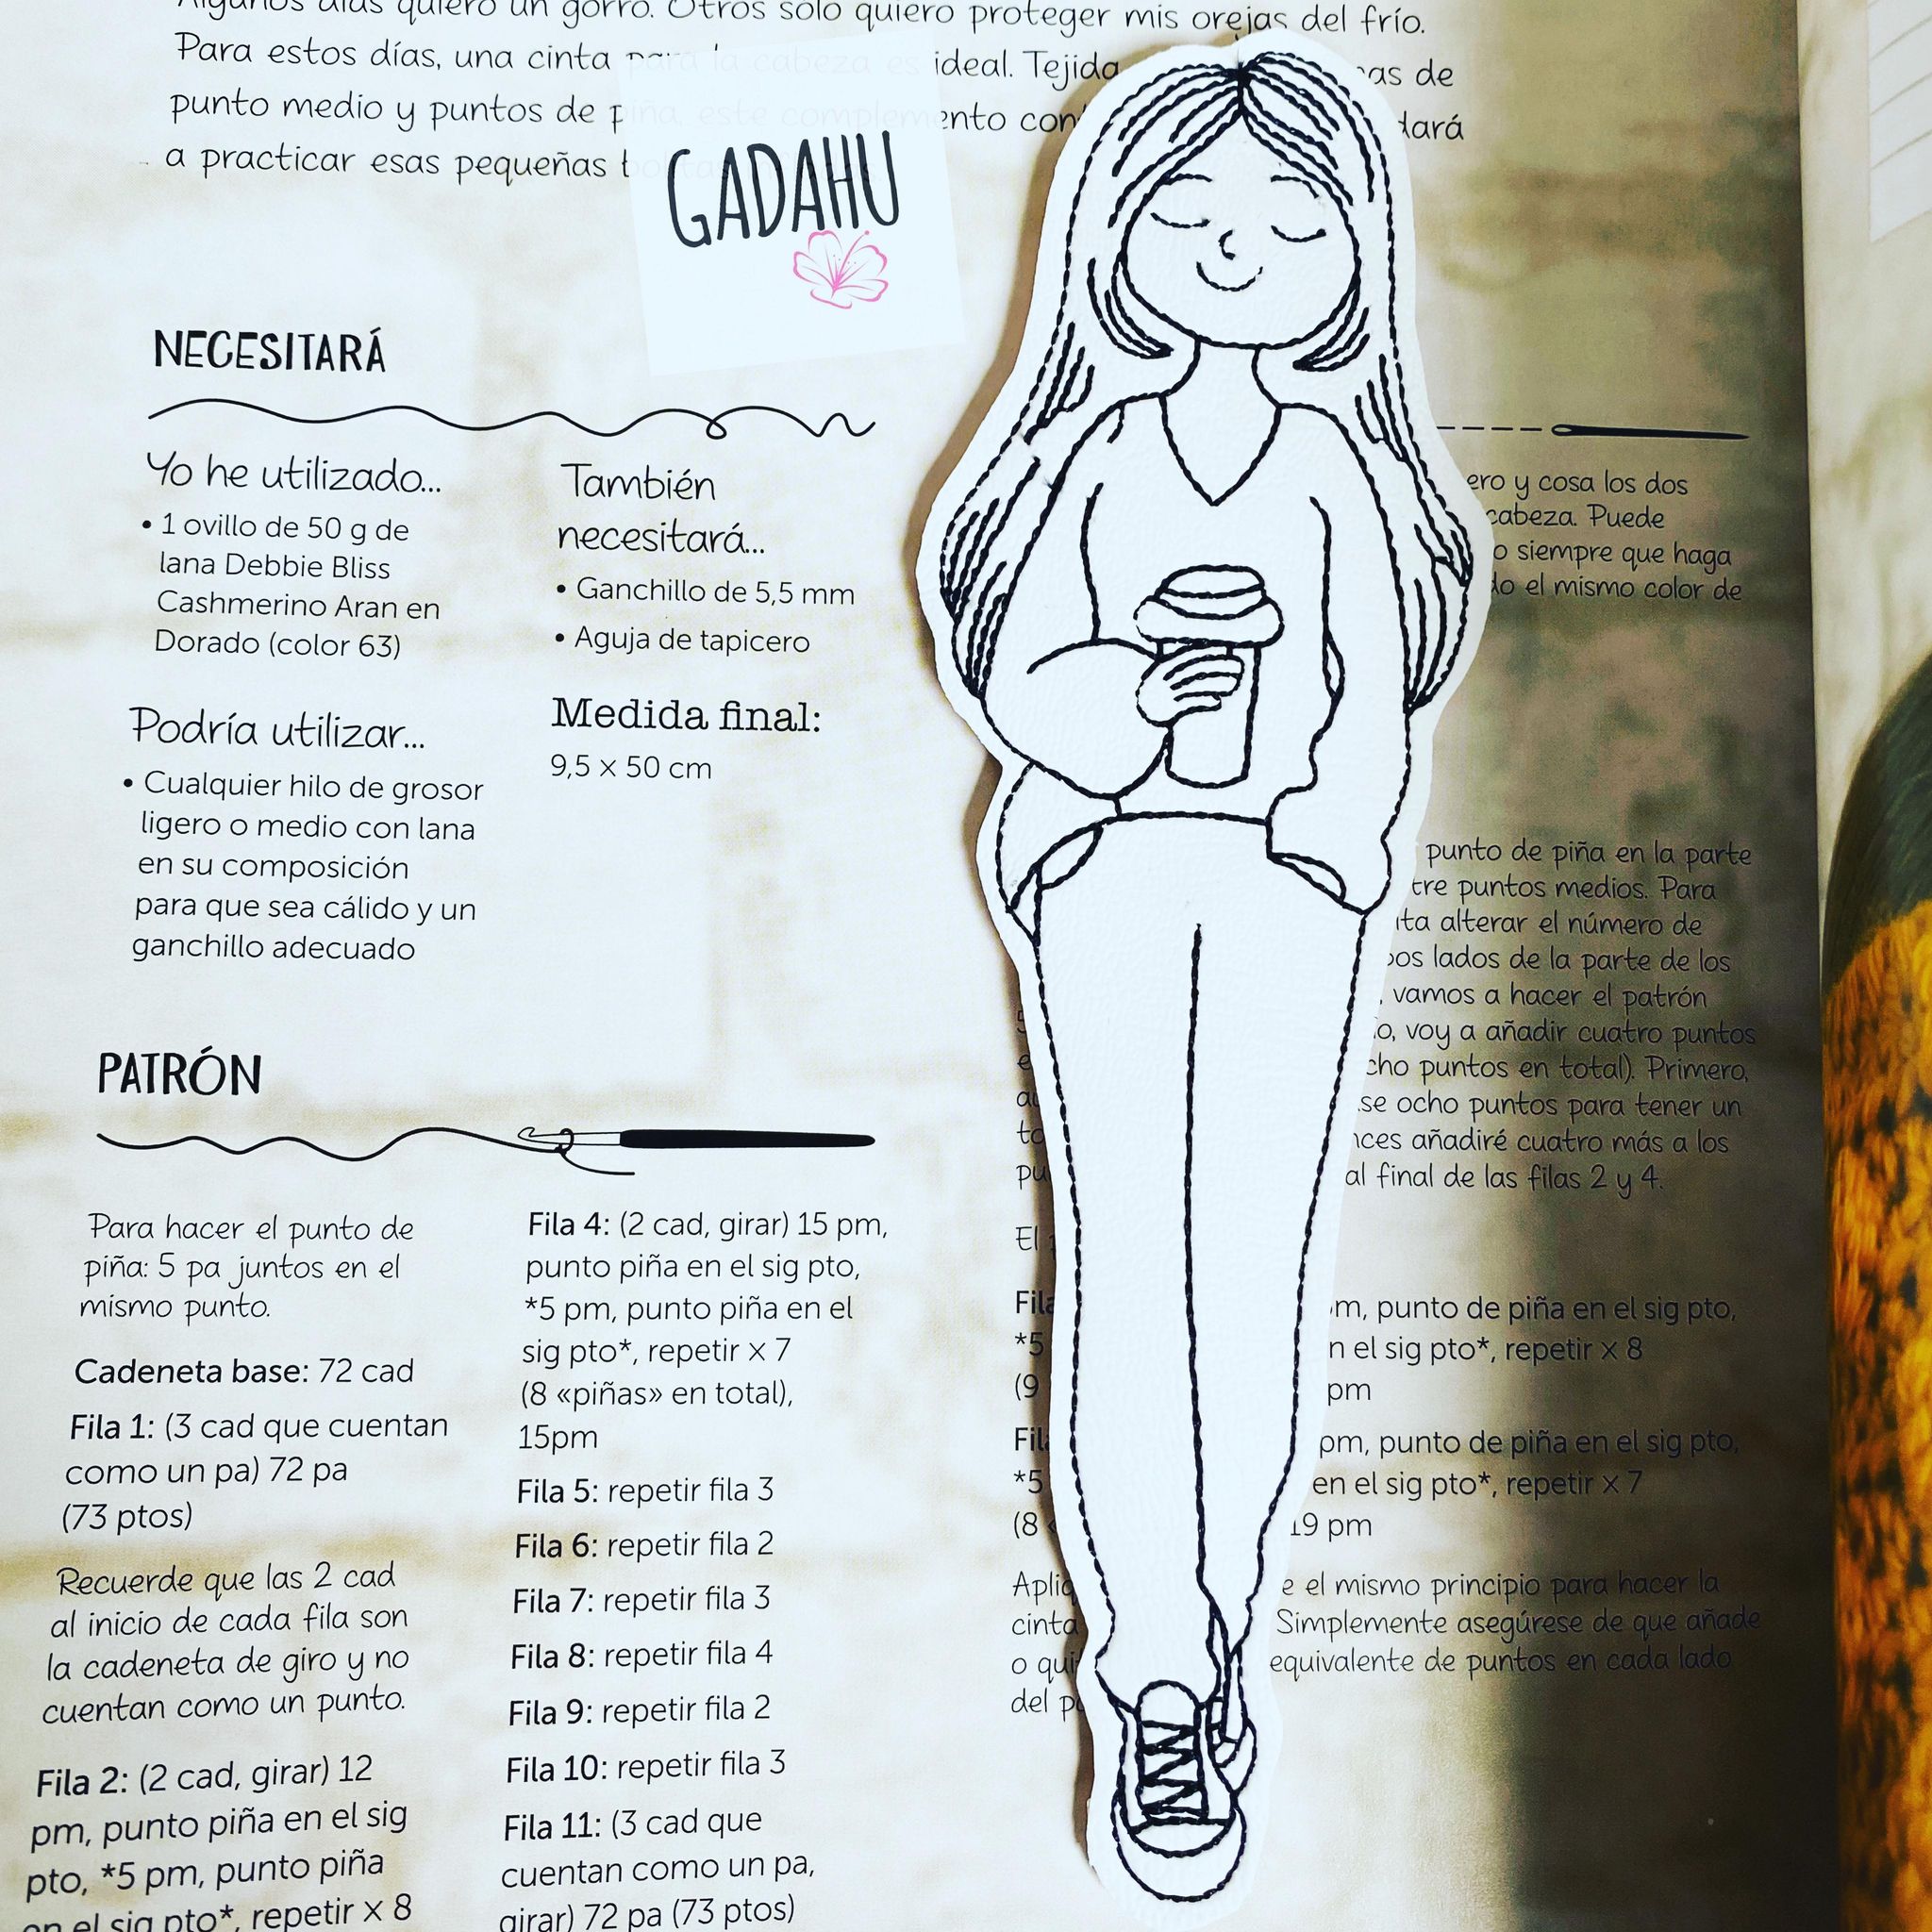 Algunos días quiero un gorro. Otros solo quiero proteger mis orejas del frío.
Para estos días, una cinta para la cabeza es ideal. Tejida
punto medio y puntos de piña, este complemento
a practicar esas pequeñas
as de
dará
GADAHU
NECESITARÁ
Yo he utilizado...
• 1 ovillo de 50 g de
lana Debbie Bliss
Cashmerino Aran en
Dorado (color 63)
Podría utilizar...
• Cualquier hilo de grosor
ligero o medio con lana
en su composición
para que sea cálido y un
ganchillo adecuado
También
necesitará...
• Ganchillo de 5,5 mm
• Aguja de tapicero
Medida final:
9,5 x 50 cm
PATRÓN
Para hacer el punto de
piña: 5 pa juntos en el
mismo punto.
Cadeneta base: 72 cad
Fila 1: (3 cad que cuentan
como un pa) 72 pa
(73 ptos)
Recuerde que las 2 cad
al inicio de cada fila son
la cadeneta de giro y no
cuentan como un punto.
Fila 2: (2 cad, girar) 12
pm, punto piña en el sig
pto, *5 pm, punto piña
en el sig pto*, repetir x 8
Fila 4: (2 cad, girar) 15 pm,
punto piña en el sig pto,
*5 pm, punto piña en el
sig pto*, repetir x 7
(8 «piñas» en total),
15pm
Fila 5: repetir fila 3
Fila 6: repetir fila 2
Fila 7: repetir fila 3
Fila 8: repetir fila 4
Fila 9: repetir fila 2
Fila 10: repetir fila 3
Fila 11: (3 cad que
cuentan como un pa,
girar) 72 pa (73 ptos)
ero y cosa los dos
cabeza. Puede
o siempre que haga
do el mismo color de
punto de piña en la parte
tre puntos medios. Para
ta alterar el número de
os lados de la parte de los
, vamos a hacer el patrón
o, voy a añadir cuatro puntos
cho puntos en total). Primero,
se ocho puntos para tener un
nces añadiré cuatro más a los
al final de las filas 2 y 4.
El
Fila m, punto de piña en el sig pto,
*5 n el sig pto*, repetir x 8
(9 pm
Fil pm, punto de piña en el sig pto,
*5 en el sig pto*, repetir x 7
(8 19 pm
Apliq e el mismo principio para hacer la
cinta Simplemente asegúrese de que añade
o qui equivalente de puntos en cada lado
del p